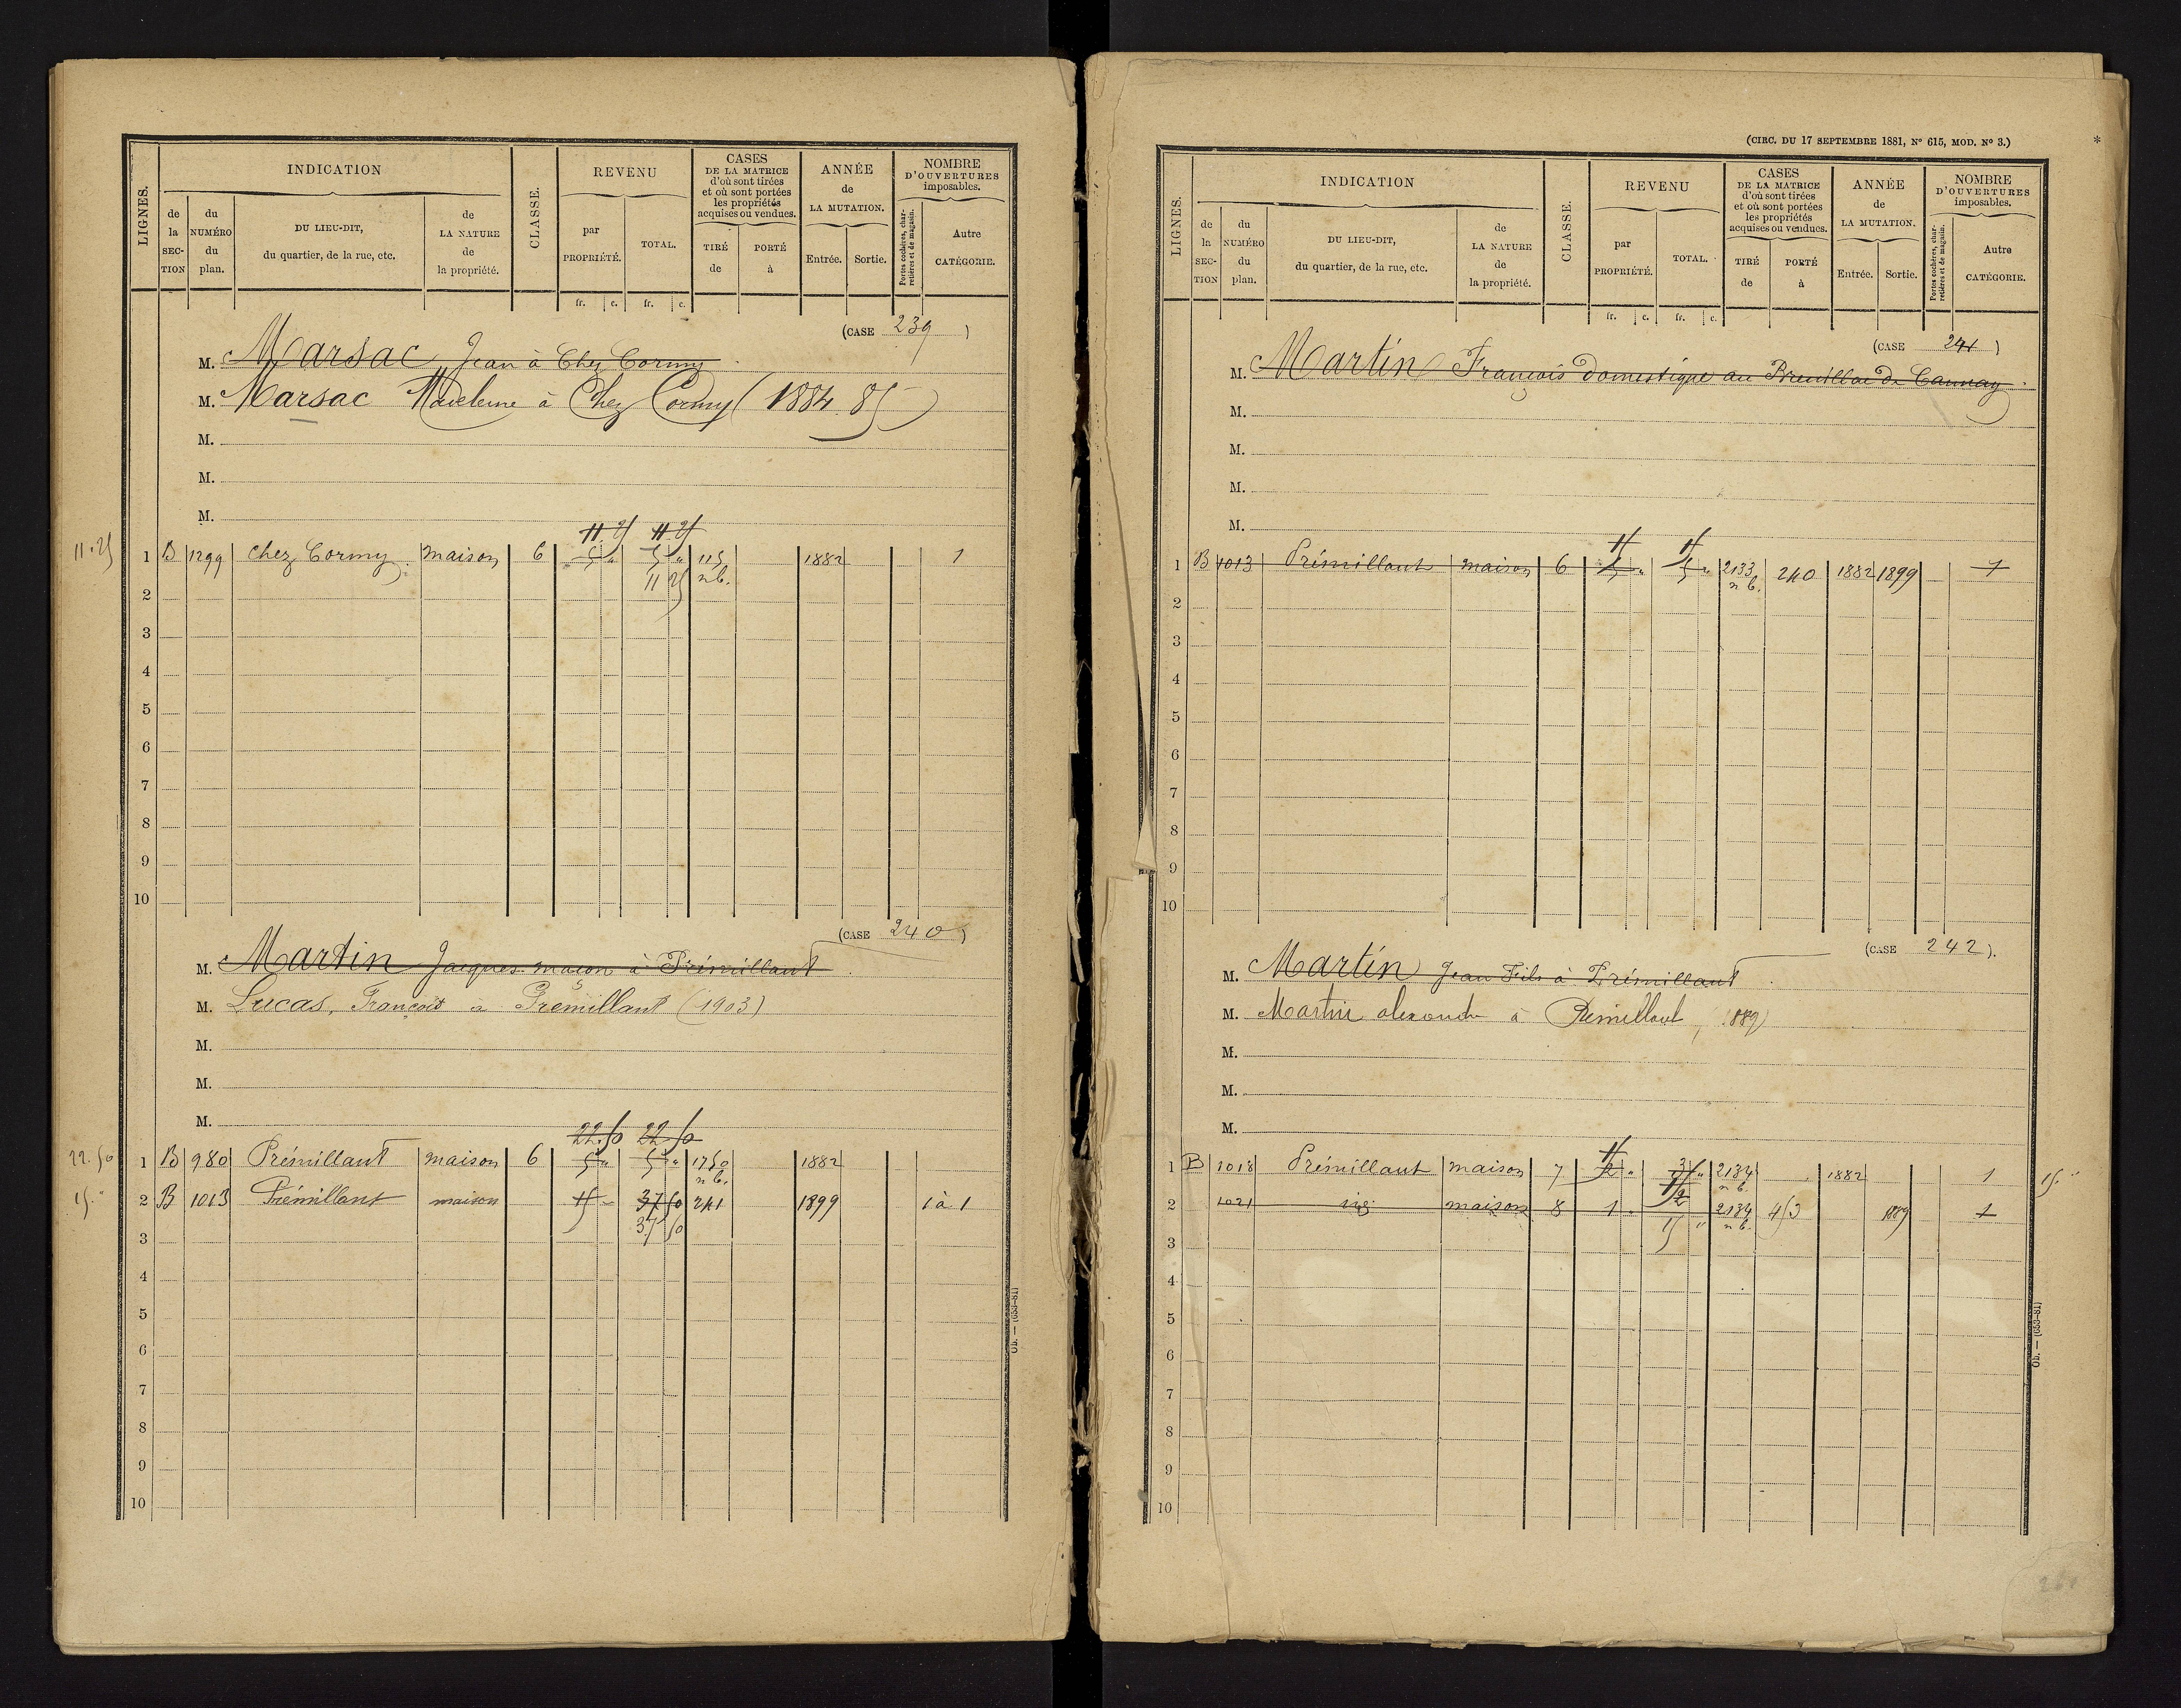 LIGNES.
INDICATION
de la SECTION
du NUMÉRO du plan.
DU LIEU-DIT, du quartier, de la rue, etc.
de LA NATURE de la propriété.
CLASSE.
REVENU
par PROPRIÉTÉ.
TOTAL.
fr. c. fr. c.
CASES DE LA MATRICE d'où sont tirées et où sont portées les propriétés acquises ou vendues.
TIRÉ de
PORTÉ à
ANNÉE de LA MUTATION.
Entrée. Sortie.
NOMBRE D'OUVERTURES imposables.
Portes cochères, charretières et de magasin.
Autre CATÉGORIE.
(CASE 239)
M. Marsac Jean à Chez Cormy
M. Marsac Madeleine à Chez Cormy (1884.85)
M.
M.
M.
11.25 11.25
11.25 1 B 1299 chez Cormy maison 6 5 " 5 " 115 1882 1
2 11 25 n b.
3
4
5
6
7
8
9
10
(CASE 240)
M. Martin Jacques maçon à Prémillant
M. Lucas, François à Prémillant (1903)
M.
M.
M.
22.50 22.50
22.50 1 B 980 Prémillant maison 6 5 " 5 " 1750 1882
n b.
15." 2 B 1013 Prémillant maison 15 - 37 50 241 1899 1 à 1
37 50
3
4
5
6
7
8
9
10
Ob. — (653-81)
(CIRC. DU 17 SEPTEMBRE 1881, N° 615, MOD. N° 3.)
*
LIGNES.
INDICATION
de la SECTION
du NUMÉRO du plan.
DU LIEU-DIT, du quartier, de la rue, etc.
de LA NATURE de la propriété.
CLASSE.
REVENU
par PROPRIÉTÉ.
TOTAL.
fr. c. fr. c.
CASES DE LA MATRICE d'où sont tirées et où sont portées les propriétés acquises ou vendues.
TIRÉ de
PORTÉ à
ANNÉE de LA MUTATION.
Entrée. Sortie.
NOMBRE D'OUVERTURES imposables.
Portes cochères, charretières et de magasin.
Autre CATÉGORIE.
(CASE 241)
M. Martin François domestique au Breuillac de
M.
M.
M.
M.
15 15
1 B 1013 Prémillant maison 6 5 " 5 " 2133 240 1882 1899 1
n b.
2
3
4
5
6
7
8
9
10
(CASE 242).
M. Martin Jean Fils à Prémillant
M. Martin alexandre à Prémillant, (1889)
M.
M.
M.
15
1 B 1018 Prémillant maison 7 2 " 3 " 2134 1882 1 15."
n b.
2 1021 maison 8 1 " 2 2134 453 1889 1
15 " n b.
3
4
5
6
7
8
9
10
Ob. — (653-81)